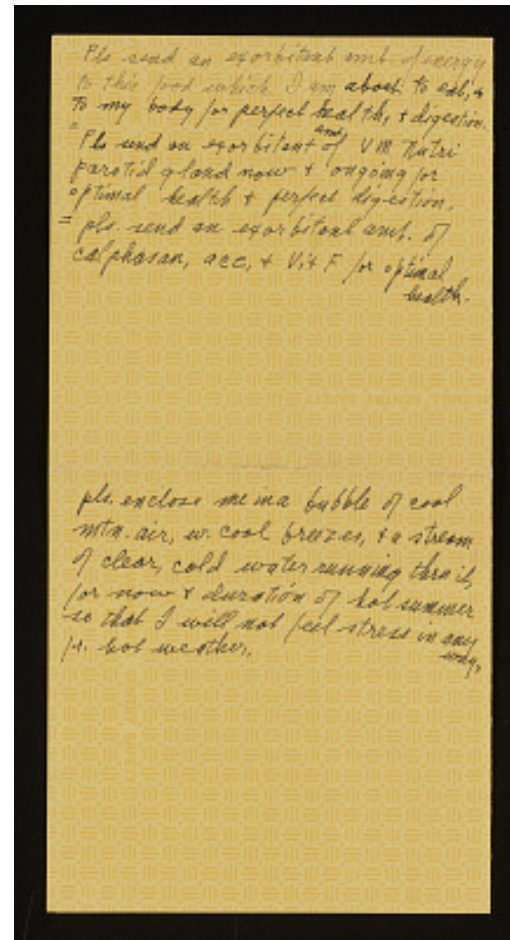 Pls send an exorbitant amt. of energy
to this food which I am about to eat, +
to my body for perfect health, + digestion.
= Pls send an exorbitant amt of VM Nutri
parotid gland now + ongoing for
optimal health + perfect digestion.
= pls. send an exorbitant amt. of
calphosan, ace, + Vit F for optimal
health.
pls. enclose me in a bubble of cool
mtn. air, w. cool breezes, + a stream
of clear, cold water running thru it,
for now + duration of hot summer
so that I will not feel stress in any
way,
fr. hot weather.